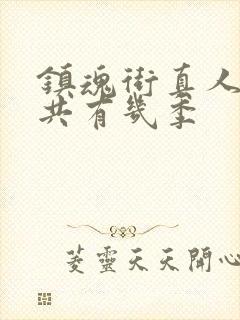 鎮魂街真人
共有幾季
菱靈天天開心